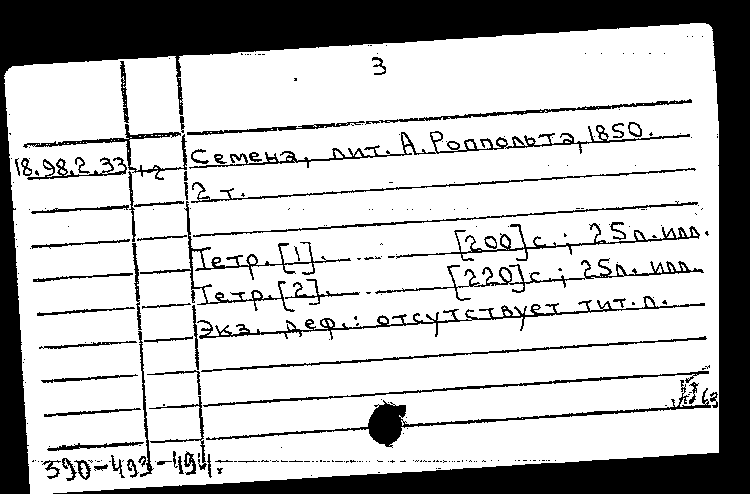 3
18.98.2.33 Семена, лит. А. Роппольта, 1850.
2 т.
Тетр. [1]. [200] с.; 25 л. илл.
Тетр. [2]. [220] с.; 25 л. илл.
Экз. деф.: отсутствует тит. л.
63
390-493-494.